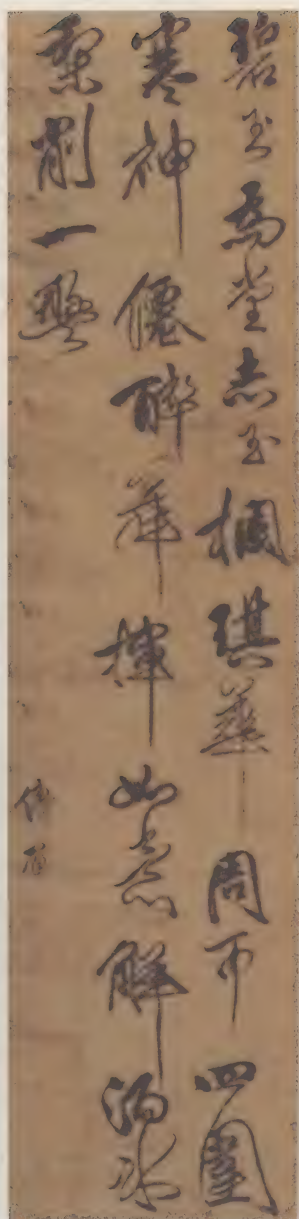 碧玉為堂赤玉欄琪華周帀四圍
寒神僊醉舞揮如意解酒冰
梨削一盤
傅眉